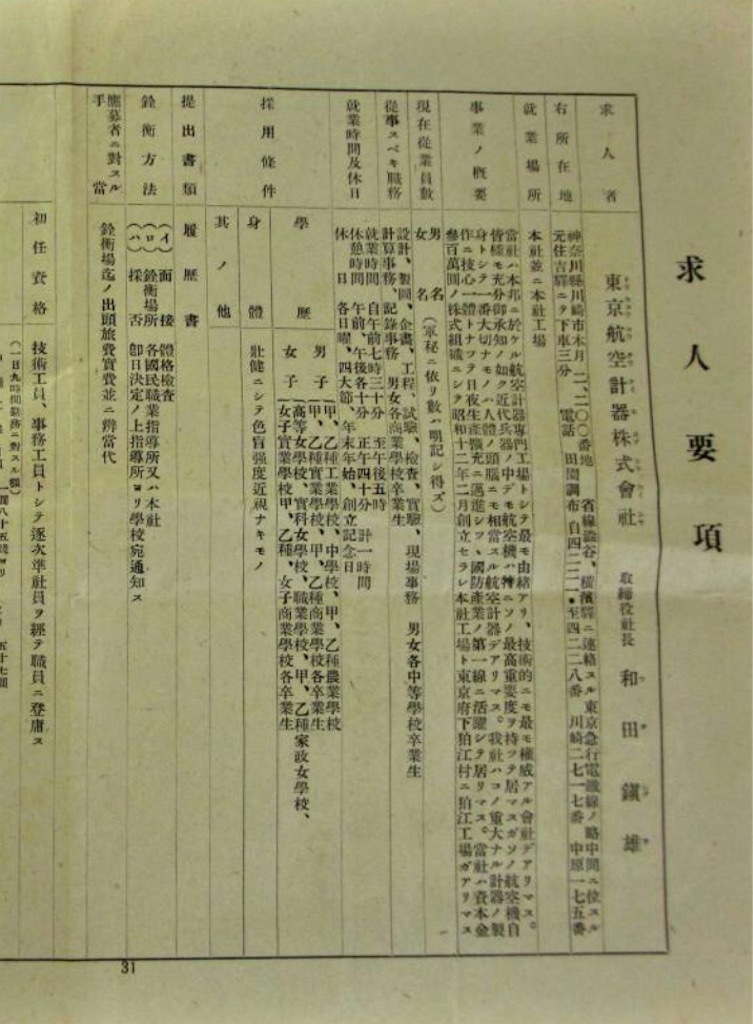 求人要項
求人者
東京航空計器株式會社 取締役社長 和田鎭雄
右所在地
神奈川縣川崎市木月二、二〇〇番地 省線澁谷、橫濱驛ニ連絡スル東京急行電鐵線ノ略中間ニ位スル
元住吉驛ニテ下車三分 電話 田園調布 自四二二一・至四二二八番 川崎二七一七番 中原一七五番
就業場所
本社並ニ本社工場
事業ノ概要
當社ハ本邦ニ於ケル航空計器專門工場トシテ最モ由緖アリ、技術的ニモ最モ權威アル會社デアリマス。
皆樣モ充分御承知ノ如ク近代兵器ノ中デモ航空機ハ特ニソノ最高重要度ヲ持ツテ居マスガソノ航空機自
身トシテ一番大切ナモノハ人體ノ頭腦ニモ相當スル航空計器デアリマス。我社ハコノ重大ナル計器ノ製
作ニ技心一體トナツテ日夜生產擴充ニ邁進シツヽ國防產業ノ第一線ニ活躍シテ居リマス。當社ハ資本金
參百萬圓ノ株式組織ニシテ昭和十二年二月創立セラレ本社工場ト東京府下狛江村ニ狛江工場ガアリマス
現在從業員數
男 名
女 名 (軍秘ニ依リ數ハ明記シ得ズ)
從事スベキ職務
設計、製圖、企畫、工程、試驗、檢查、實驗、現場事務 男女各中等學校卒業生
計算事務、記錄事務 男女各商業學校卒業生
就業時間及休日
就業時間 自午前七時三十分 至午後五時
休憩時間 午前、午後各十分 正午四十分 計一時間
休日 各日曜、四大節、年末年始、創立記念日
採用條件
學歷
男子
(甲、乙種工業學校、中學校、甲、乙種農業學校
(甲、乙種實業學校、甲、乙種商業學校各卒業生
女子
(高等女學校、實科女學校、職業學校、甲、乙種家政女學校、
(女子實業學校甲、乙種、女子商業學校各卒業生
身體
壯健ニシテ色盲强度近視ナキモノ
其ノ他
提出書類
履歷書
銓衡方法
(イ) 面接 體格檢查
(ロ) 銓衡場所 各國民職業指導所又ハ本社
(ハ) 採否 卽日決定ノ上指導所ヨリ學校宛通知ス
應募者ニ對スル手當
銓衡場迄ノ出頭旅費實費並ニ辨當代
初任資格
技術工員、事務工員トシテ逐次準社員ヲ經テ職員ニ登庸ス
(一日九時間勤務ニ對スル額)
31